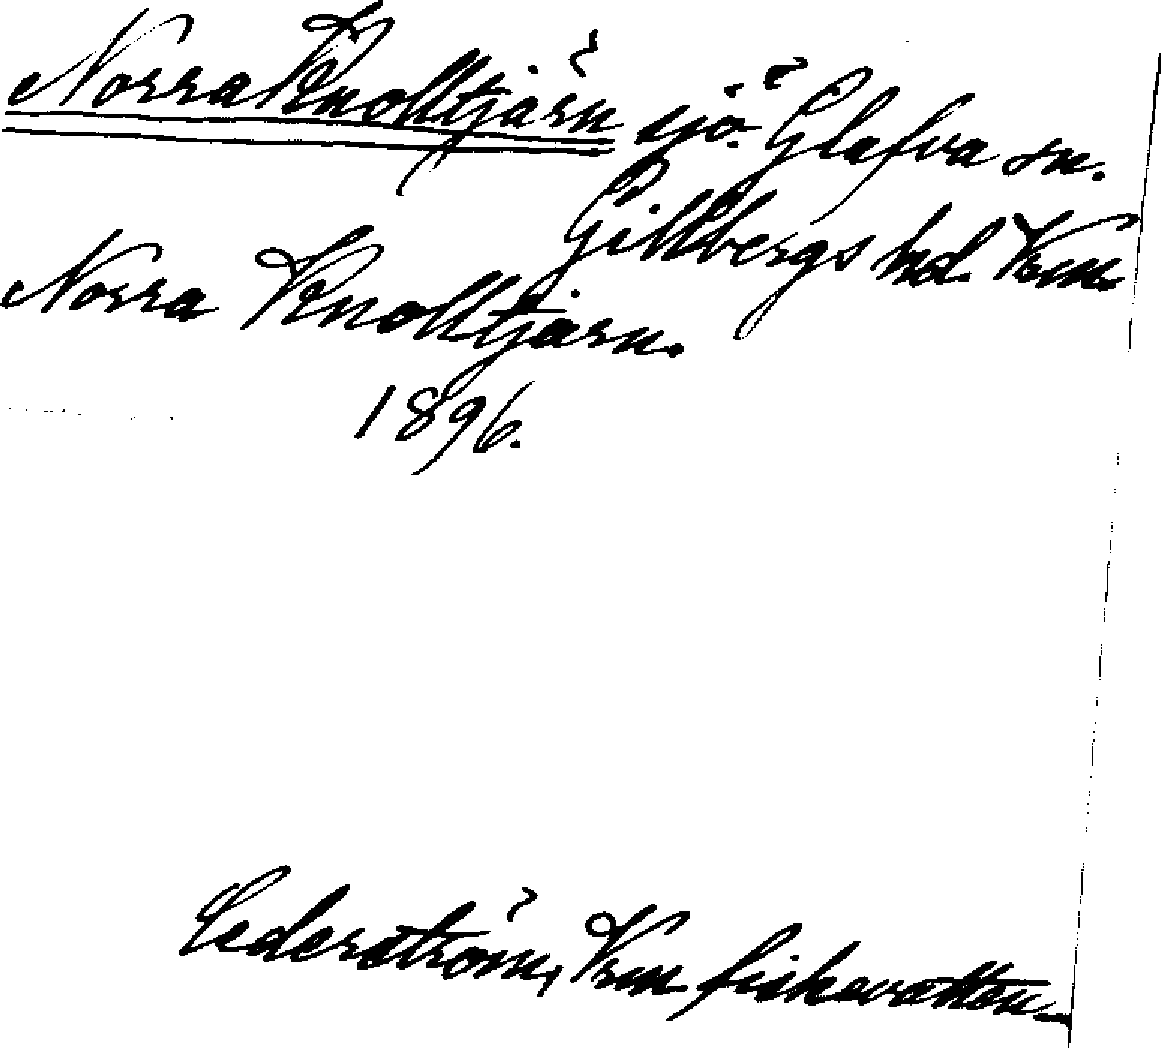 Norra Knolltjärn sjö. Glafva sn.
Gillbergs hd. Vrm.
Norra Knolltjärn.
1896.
Cederström, Vrm fiskevatten.